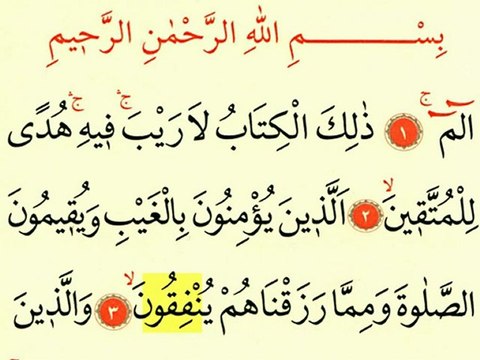 بِسْمِ اللهِ الرَّحْمٰنِ الرَّح۪يمِ
الٓمٓ ۚ ﴿١﴾ ذٰلِكَ الْكِتَابُ لَا رَيْبَ ۚ ف۪يهِ ۚ هُدًى
لِلْمُتَّق۪ينَ ۙ ﴿٢﴾ اَلَّذ۪ينَ يُؤْمِنُونَ بِالْغَيْبِ وَيُق۪يمُونَ
الصَّلٰوةَ وَمِمَّا رَزَقْنَاهُمْ يُنْفِقُونَ ۙ ﴿٣﴾ وَالَّذ۪ينَ